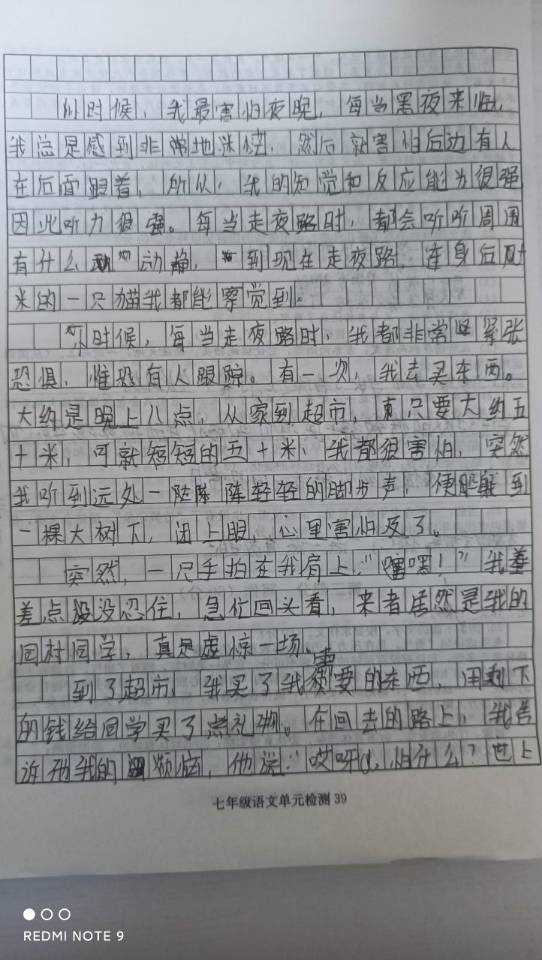 小时候，我最害怕夜晚，每当黑夜来临，
我总是感到非常地，然后就害怕后边有人
在后面跟着，所以，我的知觉和反应能力很强
因此听力很强。每当走夜路时，都会听听周围
有什么动静，到现在走夜路，连身后
米的一只猫我都能察觉到。
小时候，每当走夜路时，我都非常紧张
恐惧，惟恐有人跟踪。有一次，我去买东西。
大约是晚上八点，从家到超市，只要大约五
十米，可就短短的五十米，我都很害怕，突然
我听到远处一阵阵轻轻的脚步声，便躲到
一棵大树下，闭上眼，心里害怕极了。
突然，一只手拍在我肩上，“嘿！”我差
差点没忍住，急忙回头看，来者居然是我的
同村同学，真是虚惊一场。
到了超市，我买了我要的东西，用剩下
的钱给同学买了点礼物。在回去的路上，我告
诉他我的烦恼，他说：“哎呀，怕什么？世上
七年级语文单元检测 39
REDMI NOTE 9